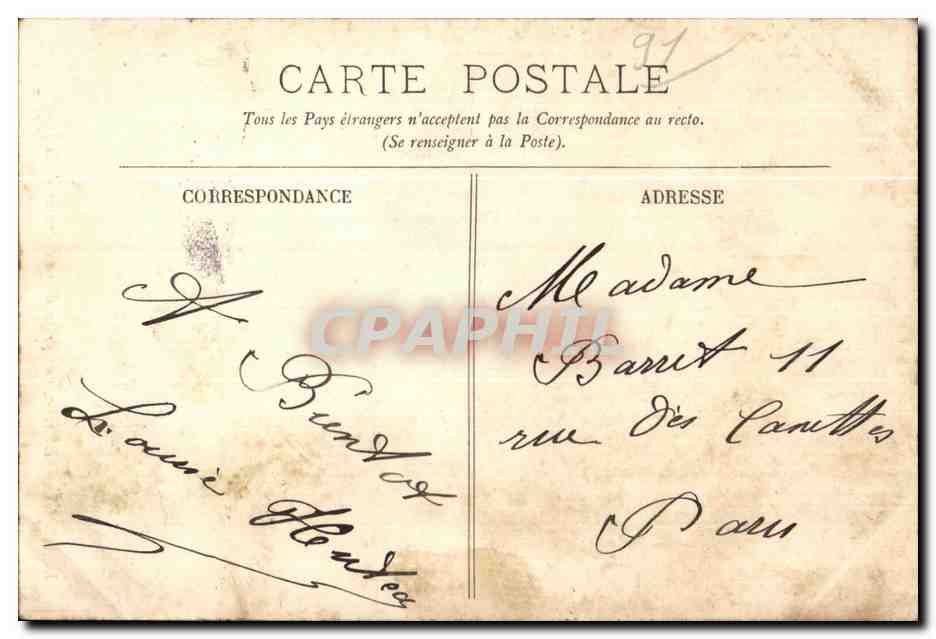 91
CARTE POSTALE
Tous les Pays étrangers n'acceptent pas la Correspondance au recto.
(Se renseigner à la Poste).
CORRESPONDANCE
A
Bientot
Louise
ADRESSE
Madame
Barret 11
rue des Canettes
Paris
CPAPHIL